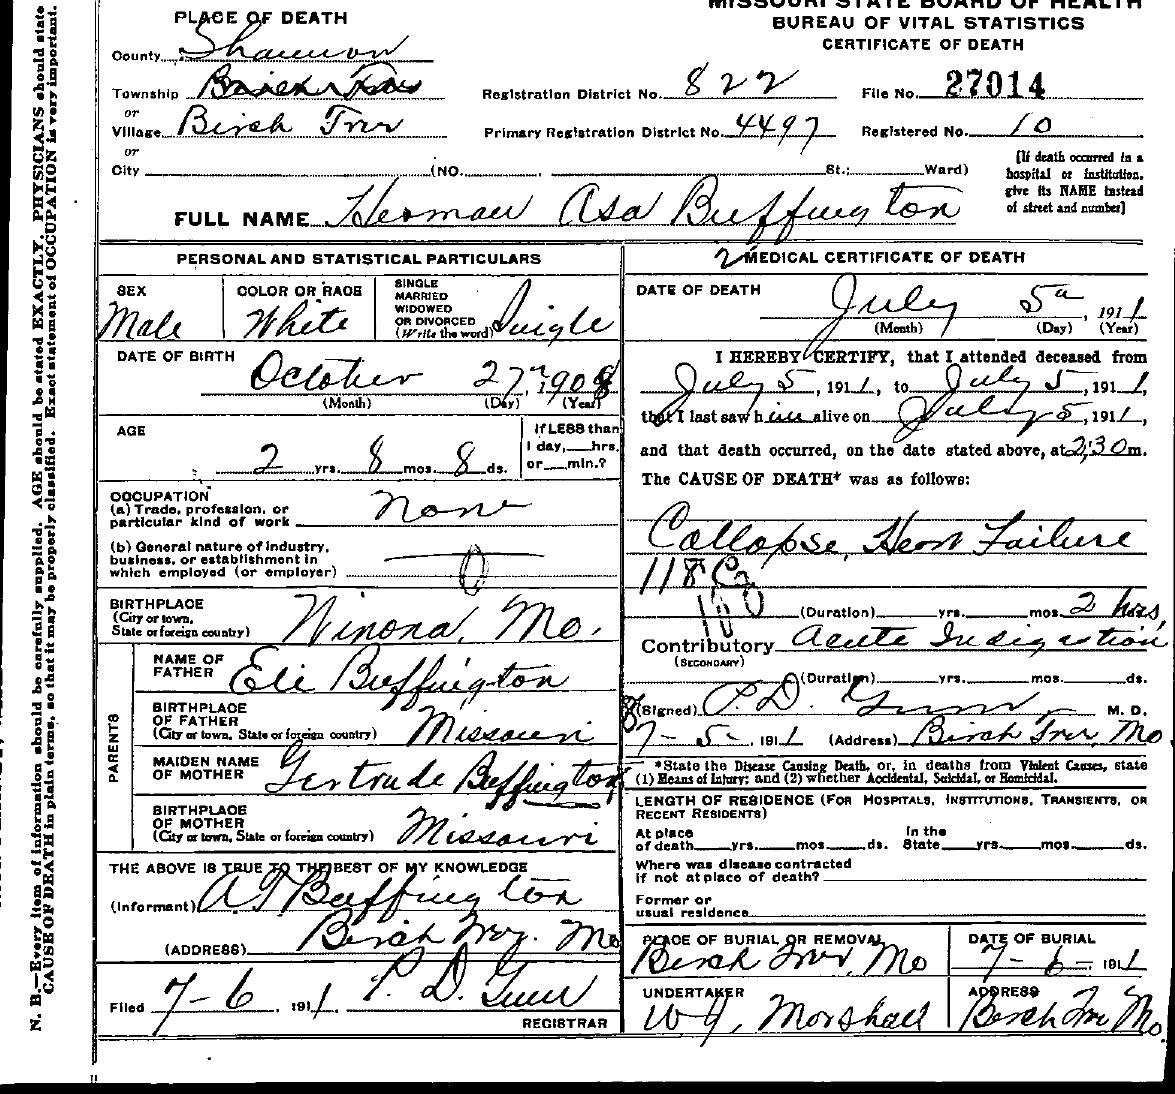 MISSOURI STATE BOARD OF HEALTH
BUREAU OF VITAL STATISTICS
CERTIFICATE OF DEATH
PLACE OF DEATH
County Shannon
Township
or
Village Birch Tree
or
City (NO. St.; Ward)
Registration District No. 822 File No. 27014
Primary Registration District No. 4497 Registered No. 10
[If death occurred in a
hospital or institution,
give its NAME instead
of street and number]
FULL NAME Herman Asa Buffington
PERSONAL AND STATISTICAL PARTICULARS
SEX
Male
COLOR OR RACE
White
SINGLE
MARRIED
WIDOWED
OR DIVORCED
(Write the word) Single
DATE OF BIRTH
October 27 1908
(Month) (Day) (Year)
AGE
2 yrs. 8 mos. 8 ds.
If LESS than
1 day, hrs.
or min.?
OCCUPATION
(a) Trade, profession, or
particular kind of work None
(b) General nature of industry,
business, or establishment in
which employed (or employer) 0
BIRTHPLACE
(City or town,
State or foreign country) Winona, Mo.
PARENTS
NAME OF
FATHER Eli Buffington
BIRTHPLACE
OF FATHER
(City or town, State or foreign country) Missouri
MAIDEN NAME
OF MOTHER Gertrude Buffington
BIRTHPLACE
OF MOTHER
(City or town, State or foreign country) Missouri
THE ABOVE IS TRUE TO THE BEST OF MY KNOWLEDGE
(Informant) A T Buffington
(ADDRESS) Birch Tree, Mo
Filed 7-6, 1911 P. D. Gum
REGISTRAR
2 MEDICAL CERTIFICATE OF DEATH
DATE OF DEATH
July 5, 1911
(Month) (Day) (Year)
I HEREBY CERTIFY, that I attended deceased from
July 5, 1911, to July 5, 1911,
that I last saw him alive on July 5, 1911,
and that death occurred, on the date stated above, at 2:30 m.
The CAUSE OF DEATH* was as follows:
Collapse, Heart Failure
118
(Duration) yrs. mos. 2 hrs.
Contributory Acute Indigestion
(SECONDARY)
(Duration) yrs. mos. ds.
(Signed) P. D. Gum, M. D.
7-5-, 1911 (Address) Birch Tree, Mo
*State the Disease Causing Death, or, in deaths from Violent Causes, state
(1) Means of Injury; and (2) whether Accidental, Suicidal, or Homicidal.
LENGTH OF RESIDENCE (FOR HOSPITALS, INSTITUTIONS, TRANSIENTS, OR
RECENT RESIDENTS)
At place In the
of death yrs. mos. ds. State yrs. mos. ds.
Where was disease contracted
if not at place of death?
Former or
usual residence
PLACE OF BURIAL OR REMOVAL
Birch Tree, Mo
DATE OF BURIAL
7-6-, 1911
UNDERTAKER
W J, Marshall
ADDRESS
Birch Tree Mo.
N. B.—Every item of information should be carefully supplied. AGE should be stated EXACTLY. PHYSICIANS should state
CAUSE OF DEATH in plain terms, so that it may be properly classified. Exact statement of OCCUPATION is very important.